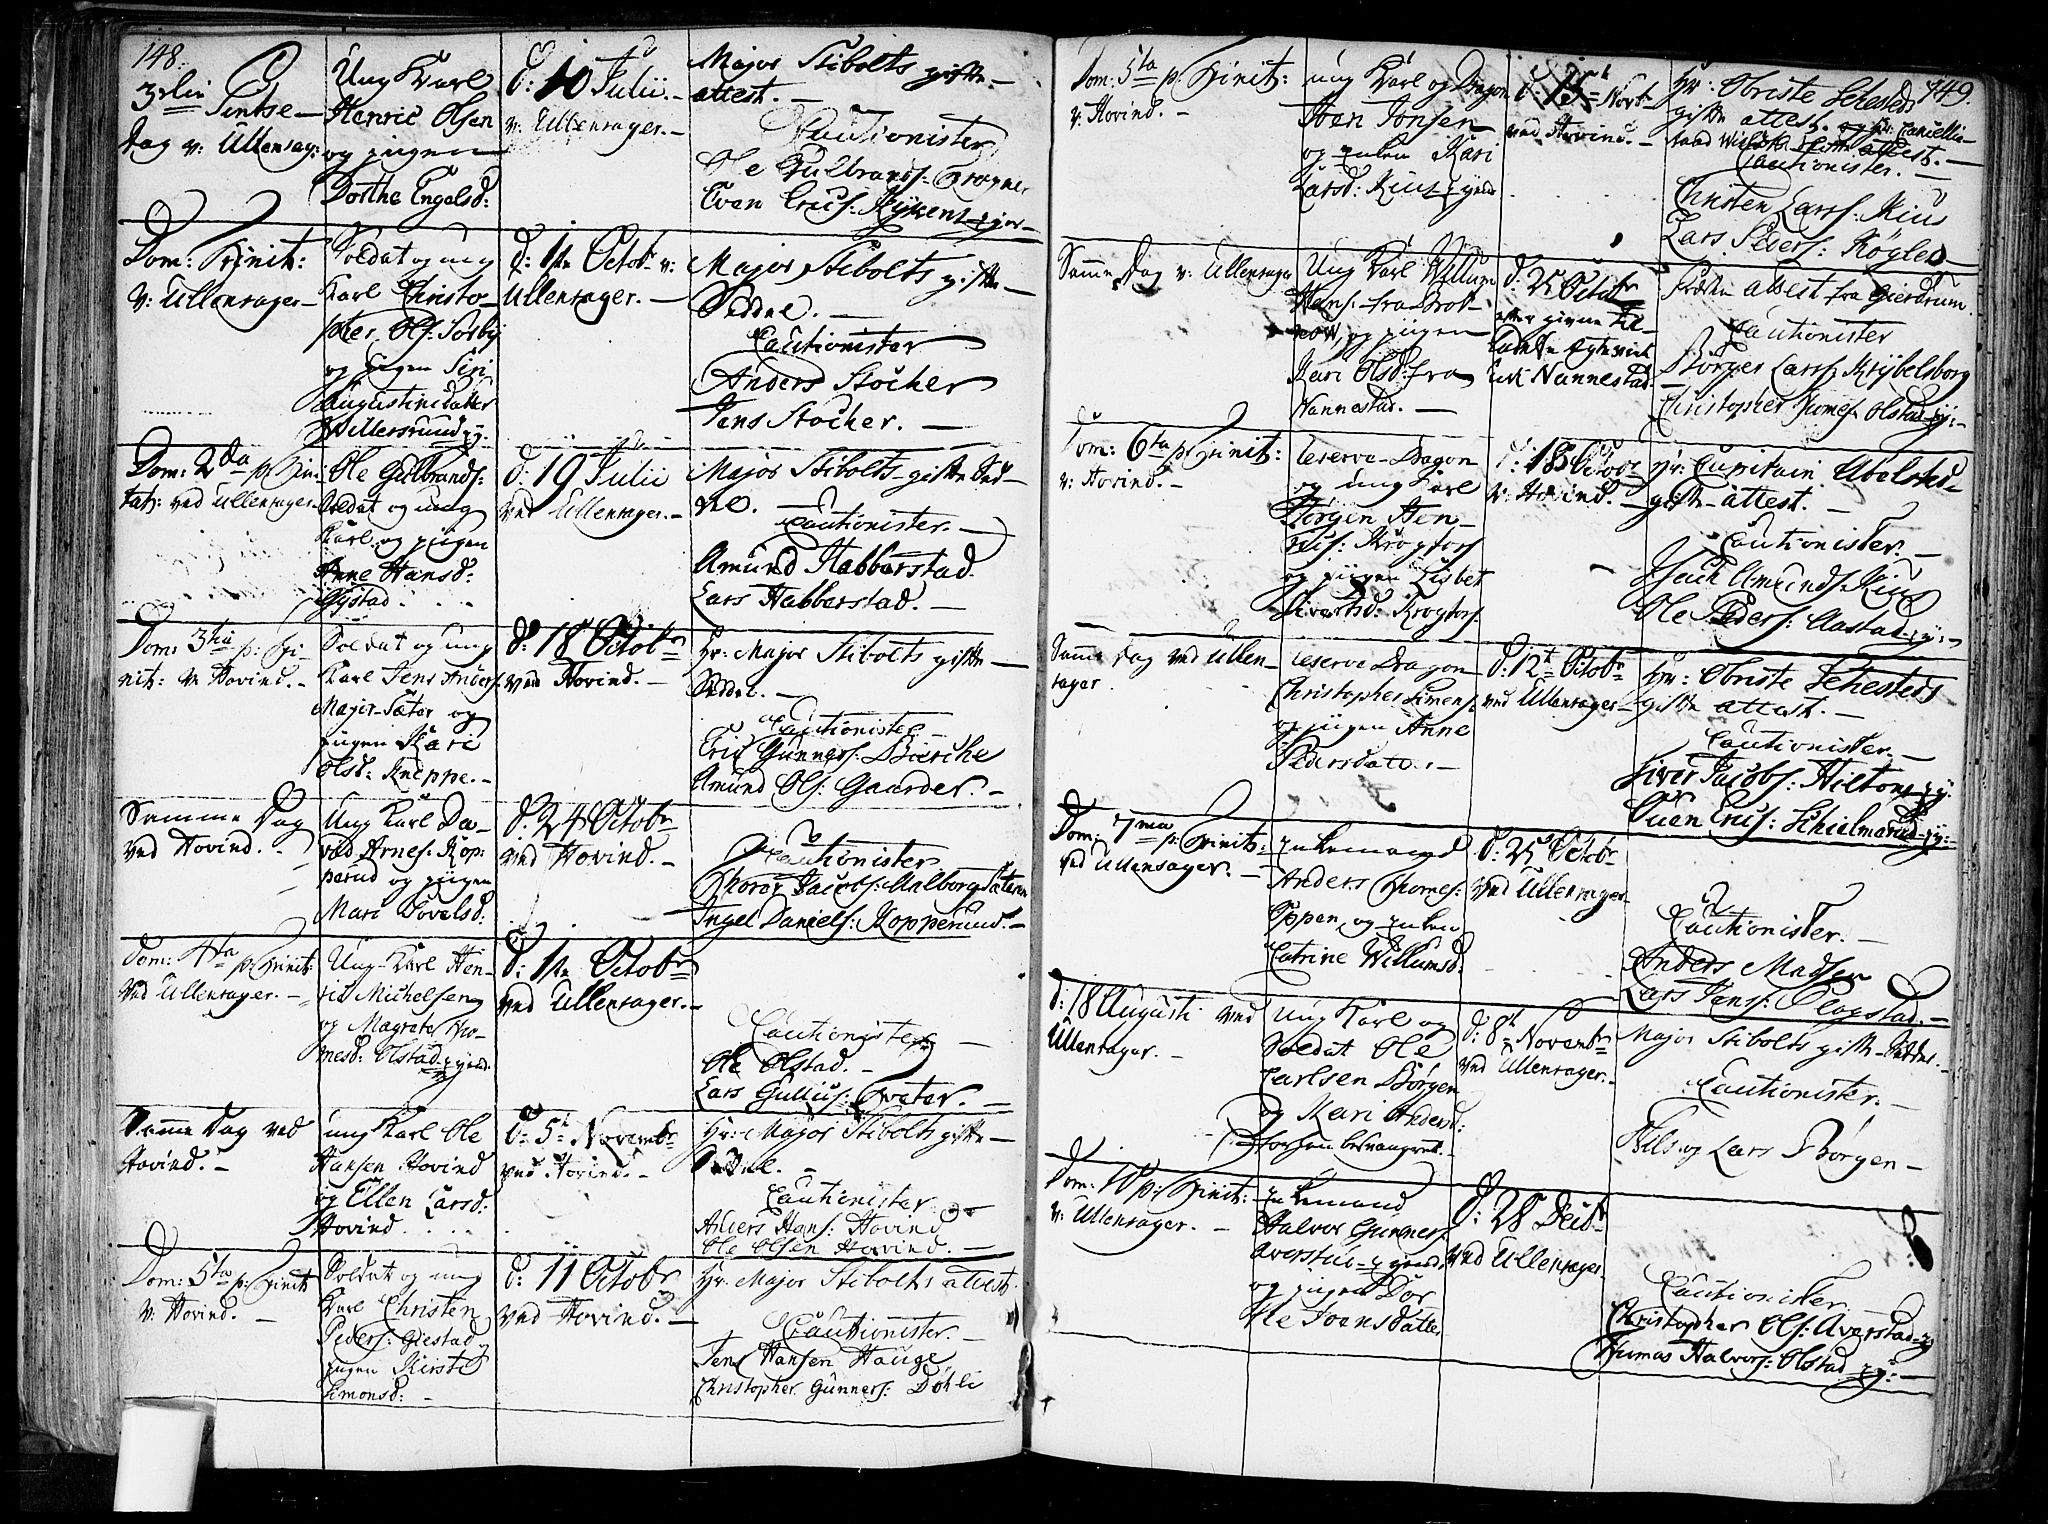 148.
3die Pintse-
Dag v: Ullensag:
Ung Karl
Henric Olsen
og pigen
Dorthe Engelsd:
d: 10 Julii.-
v: Ullensager.-
Major Stibolts gifte-
attest.-
Cautionister
Ole Gulbrands: Trogner
Even Erics:
Dom: Trinit:
v: Ullensager-
Soldat og ung
Karl Christo-
pher Ols: Sorby
og pigen Siri
Augustinidatter
Willersrud
d: 1te Octobr v:
Ullensager.-
Major Stibolts gifte-
Seddel.-
Cautionister
Anders Stocher
Jens Stocher.-
Dom: 2da p: Trini-
tat: ved Ullensager-
Ole Gulbrands:
Soldat og ung
Karl og pigen
Anne Hansd:
Gystad.
d: 19 Julii
ved Ullensager.-
Major Stibolts gifte Sed-
del.-
Cautionister.-
Amund Habberstad
Lars Habberstad.-
Dom: 3tia p: Tri-
nit: v: Hovind.-
Soldat og ung
Karl Jens Anders:
Majer-Sæter og
pigen Kari
Olsd: Kneppe.-
d: 18 Octobr
ved Hovind.-
Hr: Major Stibolts gifte-
Seddel.-
Cautionister-
Eric Gunners: Bierche
Amund Ols: Gaarder.-
Samme Dag
ved Hovind.-
Ung Karl Da-
vid Arnes: Kop-
perud og pigen
Mari Povelsd:
d: 24 Octobr
ved Hovind.-
Cautionister
Thorer Jacobs: Aalborg Sæteren
Ingel Daniels: Kopperud.-
Dom: 4ta p: Trinit:
ved Ullensager.-
Ung Karl Hen-
ric Michelsen
og Magrete Tho-
mesd: Olstad
d: 1te Octobr
ved Ullensager.-
Cautionister-
Ole Olstad.-
Lars Gullics: Tveter.-
Samme Dag ved
Hovind.-
ung Karl Ole
Hansen Hovind
og Ellen Larsd:
Hovind
d: 5te Novembr
ved Hovind.-
Hr: Major Stibolts gifte-
Seddel.-
Cautionister
Anders Hans: Hovind
Ole Olsen Hovind.-
Dom: 5ta p: Trinit:
v: Hovind.-
Soldat og ung
Karl Christen
Peders: Giestad
pigen Kirsti
Simonsd:-
d: 11 Octobr
ved Hovind.-
Hr: Major Stibolts attest.
Cautionister.-
Jens Hansen Hauge
Christopher Gunners: Døhli
149.
Dom: 5ta p: Trinit:
v: Hovind.-
ung Karl og Dragon
Iver Jonsen
og enken Kari
Larsd: Kius
d: 15te Novbr
ved Hovind.-
Hr: Obriste Sehesteds
gifte attest. og Hr: Cancellie-
raad attest.-
Cautionister.-
Christen Larss: Kius
Lars Peders: Rogler
Samme Dag v: Ullensager
Ung Karl Willum
Hans: fra
og pigen
Kari Olsd: fra
Nannestad.-
d: 25 Octobr
efter given til-
ladelse
udi Nannestad.
Præste attest fra Gierdrum
Cautionister
Børger Larss: Krybelsborg
Christopher Thomes: Olstad
Dom: 6ta p: Trinit:
v: Hovind.-
reserve-Dragon
og ung Karl
Jørgen Hen-
rics: Krogfoss
og pigen Lisbet
Sivertsd: Krogfoss
d: 18 Octobr
v: Hovind.-
Hr: Capitain Abelsted-
gifte-attest.-
Cautionister.-
Isach Amunds: Kius
Ole Peders: Aastad
Samme Dag ved Ullen-
sager.
reserve Dragon
Christopher Simens:
og pigen Anne
Pedersdatt:-
d: 12te Octobr
ved Ullensager-
Hr: Obriste Sehesteds
gifte attest.-
Cautionister.-
Siver Jacobs: Hilton
Even Erics: Schielmerud
Dom: 7ma p: Trinit:
ved Ullensager.-
enkemand
Anders Thomes:
Oppen og enken
Catrine Willumsd:
d: 25 Octobr
ved Ullensager-
Cautionister.-
Anders Madsen
Lars Jens: Clogstad.-
d: 18 Augusti ved
Ullensager.-
ung Karl og
Soldat Ole
Carlsen Børgen
og Kari Andersd:
forhen besvangret.-
d: 8te Novembr
ved Ullensager.-
Major Stibolts gifte Seddel.-
Cautionister.-
Nils og Lars Børgen-
Dom: 10 p: Trinit:
v: Ullensager.-
enkemand
Halvor Gunners:
Aversta
og pigen Dor-
the Joensdatter
d: 28 Decbr
ved Ullensager.
Cautionister-
Christopher Ols: Averstad
Thomas Halvors: Olstad